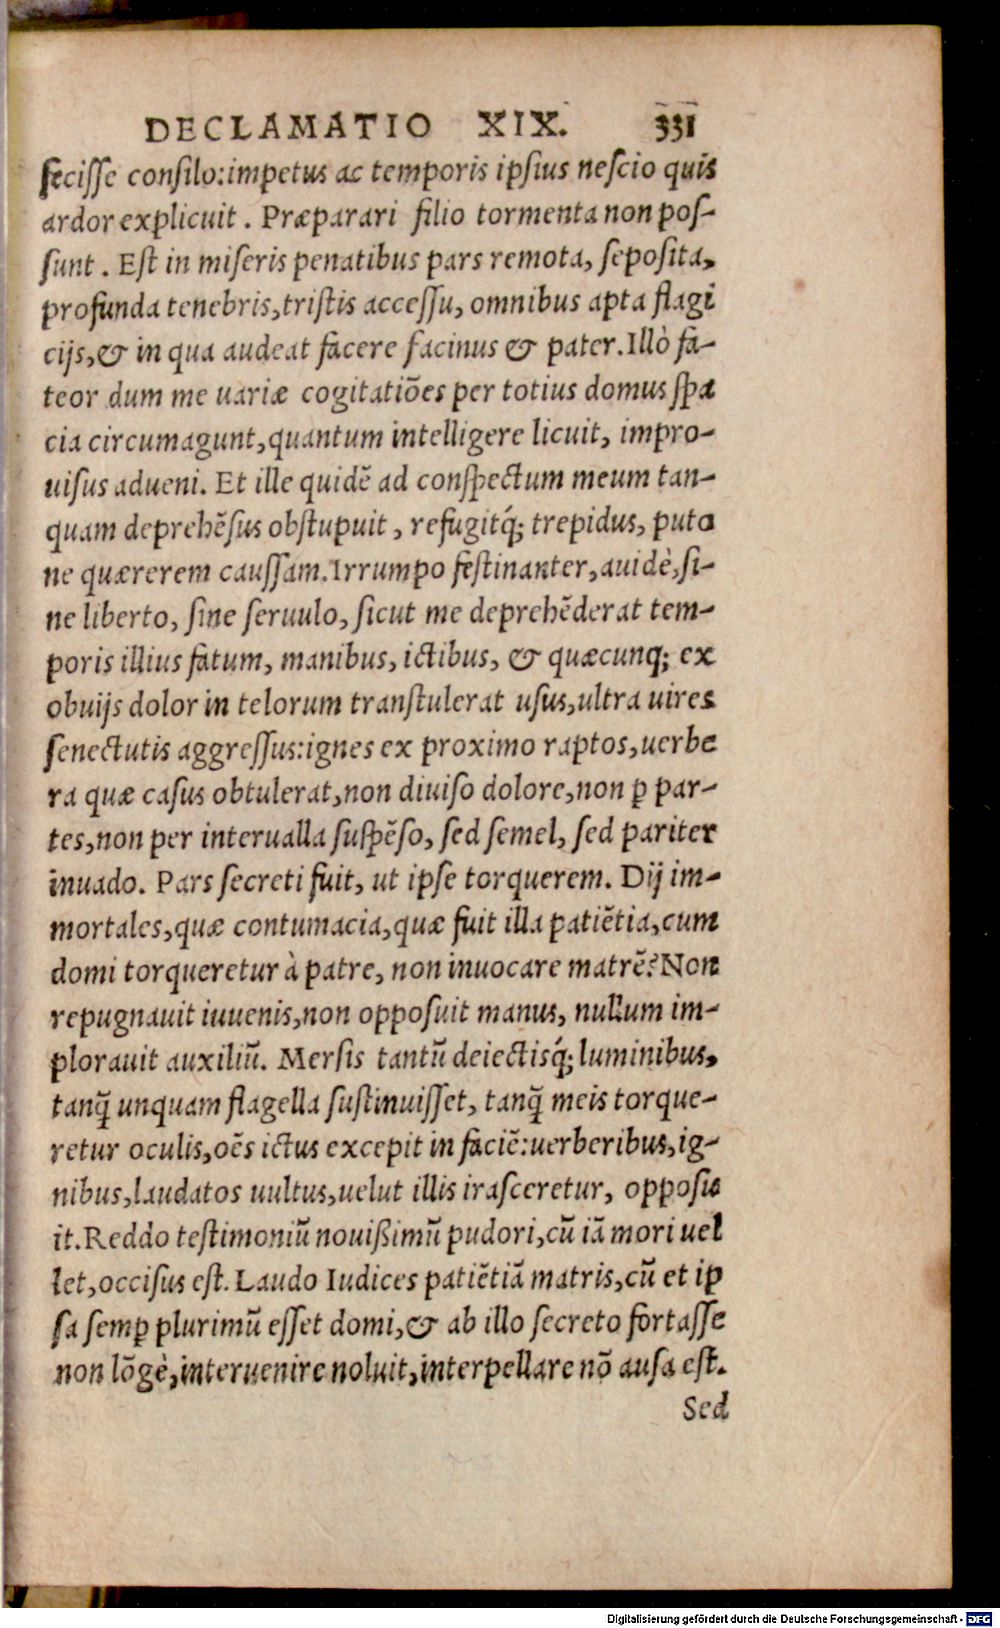 DECLAMATIO XIX. 331
fecisse consilo:impetus ac temporis ipsius nescio quis
ardor explicuit . Præparari filio tormenta non pos-
sunt . Est in miseris penatibus pars remota, seposita,
profunda tenebris,tristis accessu, omnibus apta flagi
cijs,& in qua audeat facere facinus & pater.Illò fa-
teor dum me uariæ cogitatiões per totius domus spa
cia circumagunt,quantum intelligere licuit, impro-
uisus adueni. Et ille quidē ad conspectum meum tan-
quam deprehēsus obstupuit , refugitq́; trepidus, puto
ne quærerem caussam.Irrumpo festinanter,auidè,si-
ne liberto, sine seruulo, sicut me deprehēderat tem-
poris illius fatum, manibus, ictibus, & quæcunq; ex
obuijs dolor in telorum transtulerat usus,ultra uires
senectutis aggressus:ignes ex proximo raptos,uerbe
ra quæ casus obtulerat,non diuiso dolore,non ꝑ par-
tes,non per interualla suspēso, sed semel, sed pariter
inuado. Pars secreti fuit, ut ipse torquerem. Dij im-
mortales,quæ contumacia,quæ fuit illa patiētia,cum
domi torqueretur à patre, non inuocare matrē?Non
repugnauit iuuenis,non opposuit manus, nullum im-
plorauit auxiliū. Mersis tantū deiectisq́; luminibus,
tanq̄ unquam flagella sustinuisset, tanq̄ meis torque-
retur oculis,oēs ictus excepit in faciē:uerberibus,ig-
nibus,laudatos uultus,uelut illis irasceretur, opposu
it.Reddo testimoniū nouißimū pudori,cū iā mori uel
let,occisus est. Laudo Iudices patiētiā matris,cū et ip
sa semꝑ plurimū esset domi,& ab illo secreto fortasse
non lōgè,interuenire noluit,interpellare nō ausa est.
Sed
Digitalisierung gefördert durch die Deutsche Forschungsgemeinschaft - DFG